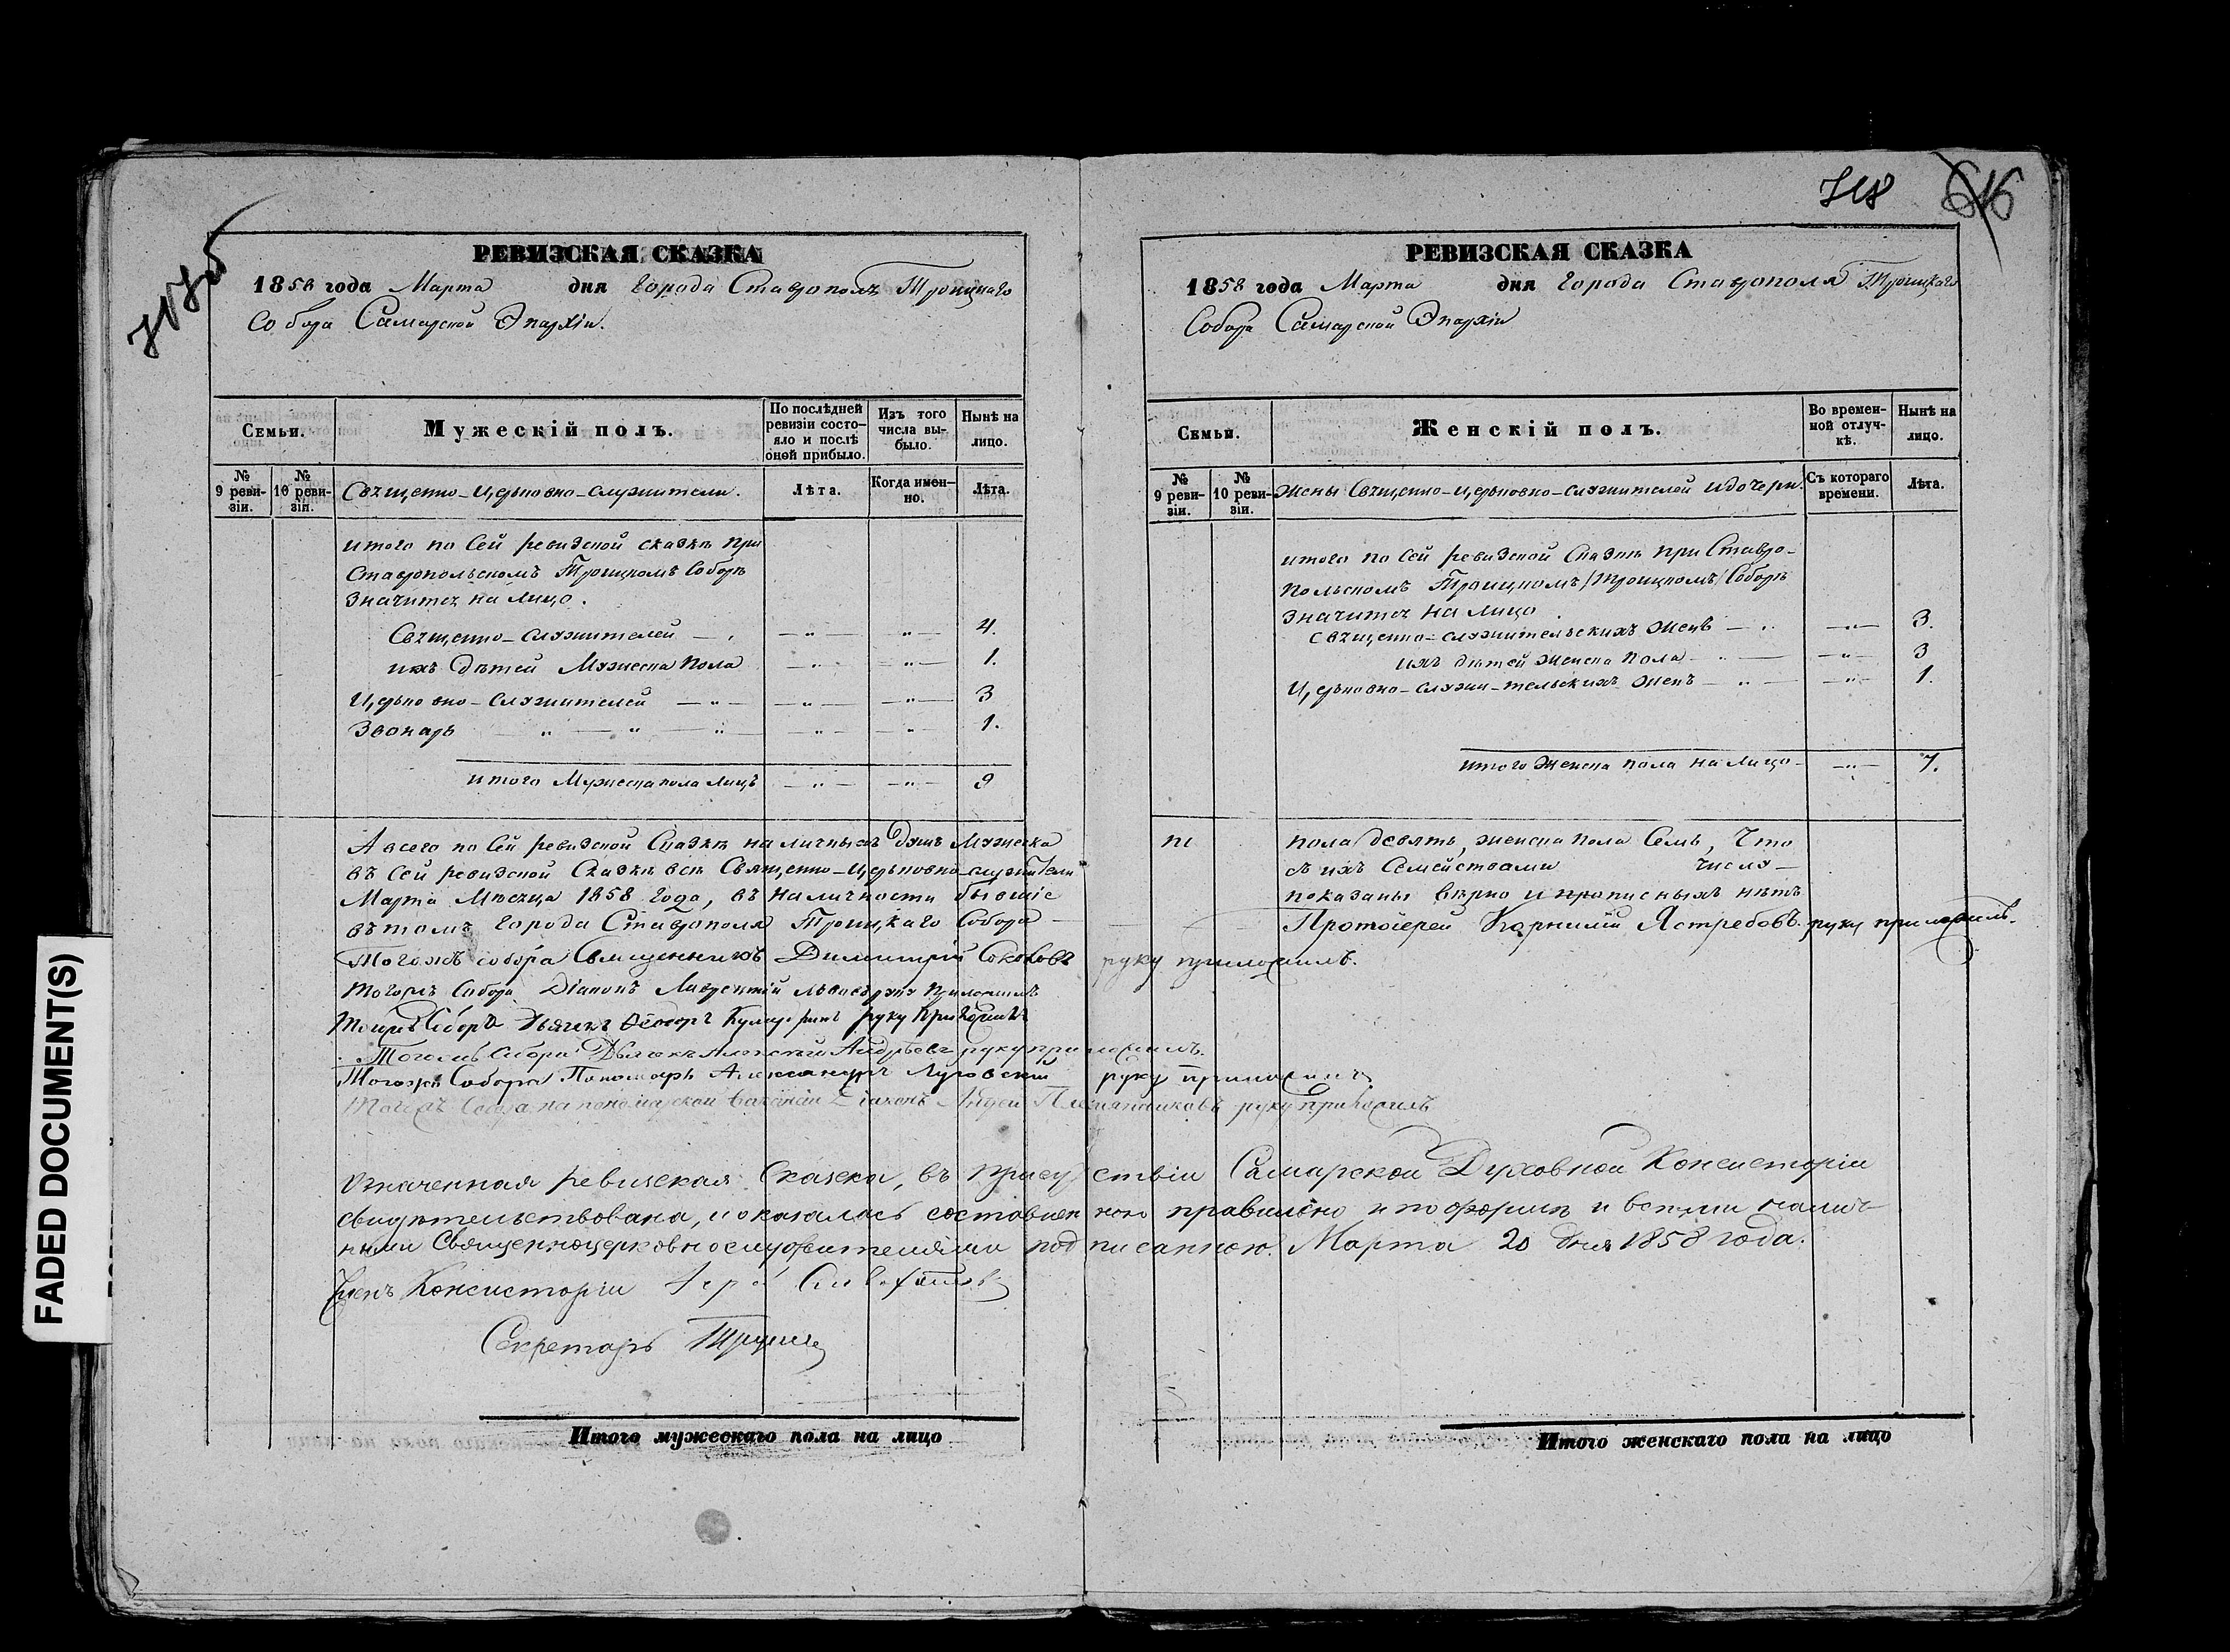 717об
РЕВИЗСКАЯ СКАЗКА
1858 года Марта дня Города Ставрополя Троицкаго
Собора Самарской Эпархіи.
Семьи.
Мужескій полъ.
По послѣдней ревизіи состо-
яло и послѣ оной прибыло.
Изъ того числа вы-
было.
Нынѣ на лицо.
№ 9 реви-
зіи.
№ 10 реви-
зіи.
Свѧщенно-Церковно-служители.
Лѣта.
Когда имен-
но.
Лѣта.
итого по Сей ревизской сказкѣ при
Ставропольскомъ Троицкомъ Соборѣ
значитсѧ на лицо.
Свѧщенно-служителей 4.
ихъ дѣтей Мужеска пола 1.
Церковно-служителей 3
Звонарь 1.
итого Мужеска пола лицъ 9
А всего по Сей ревизской Сказкѣ наличныхъ душъ Мужеска
въ Сей ревизской Сказкѣ всѣ Священно-Церковно-служители
Марта Мѣсяца 1858 года, въ наличности бывшіе
въ томъ города Ставрополя Троицкаго Собора
Тогожъ собора Священникъ Димитрій Соколовъ руку приложилъ.
Тогожъ Собора Діаконъ Лаврентій руку приложилъ
Тогожъ Собора Дьячекъ Ѳеодоръ руку приложилъ
Тогожъ Собора Дьячекъ Андреевъ руку приложилъ.
Тогожъ Собора Пономарь Александръ Луговскій руку приложилъ
Тогожъ Собора на пономарской вакансіи Діаконъ Андрей Племянниковъ руку приложилъ
Означенная ревизская Сказка, въ присутствіи Самарской Духовной Консисторіи
свидѣтельствована, и оказалась составленною правильно и по формѣ и всѣми налич-
ными Священноцерковнослужителями подписанною. Марта 20 дня 1858 года.
Членъ Консисторіи
Секретарь
Итого мужескаго пола на лицо
718 616
РЕВИЗСКАЯ СКАЗКА
1858 года Марта дня Города Ставрополя Троицкаго
Собора Самарской Эпархіи
Семьи.
Женскій полъ.
Во времен-
ной отлуч-
кѣ.
Нынѣ на лицо.
№ 9 реви-
зіи.
№ 10 реви-
зіи.
Жены Свѧщенно-Церковно-служителей и дочери.
Съ котораго времени.
Лѣта.
итого по Сей ревизской Сказкѣ при Ставро-
польскомъ Троицкомъ /Троицкомъ/ Соборѣ
значитсѧ на лицо
Свѧщенно-служительскихъ женъ 3.
ихъ дѣтей женска пола 3
Церковно-служи-тельскихъ женъ 1.
итого женска пола на лицо 7.
пола девять, женска пола Семь, Что
съ ихъ Семействами числя
показаны вѣрно и прописныхъ нѣтъ
Протоіерей Корнилій Ястребовъ руку приложилъ.
Итого женскаго пола на лицо
FADED DOCUMENT(S)